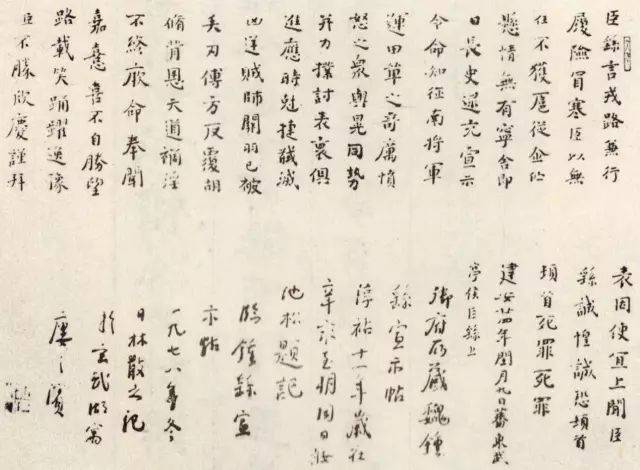 臣繇言戎路兼行
履險冒寒臣以無
任不獲扈從企佇
懸情無有寧舍即
日長史逯充宣示
令命知征南將軍
運田單之奇厲憤
怒之衆與晃同勢
并力撲討表裏俱
進應時剋捷馘滅
凶逆賊帥關羽已被
矢刃傅方反覆胡
脩背恩天道禍淫
不終厥命奉聞
嘉憙喜不自勝望
路載笑踊躍逸豫
臣不勝欣慶謹拜
表因便宜上聞臣
繇誠惶誠恐頓首
頓首死罪死罪
建安廿四年閏月九日蕃東武
亭侯臣繇上
御府所藏魏鍾
繇宣示帖
淳祐十一年歲
日
題記
臨鍾繇宣
示帖
一九七八年冬
日林散之記
於玄武湖
之濱